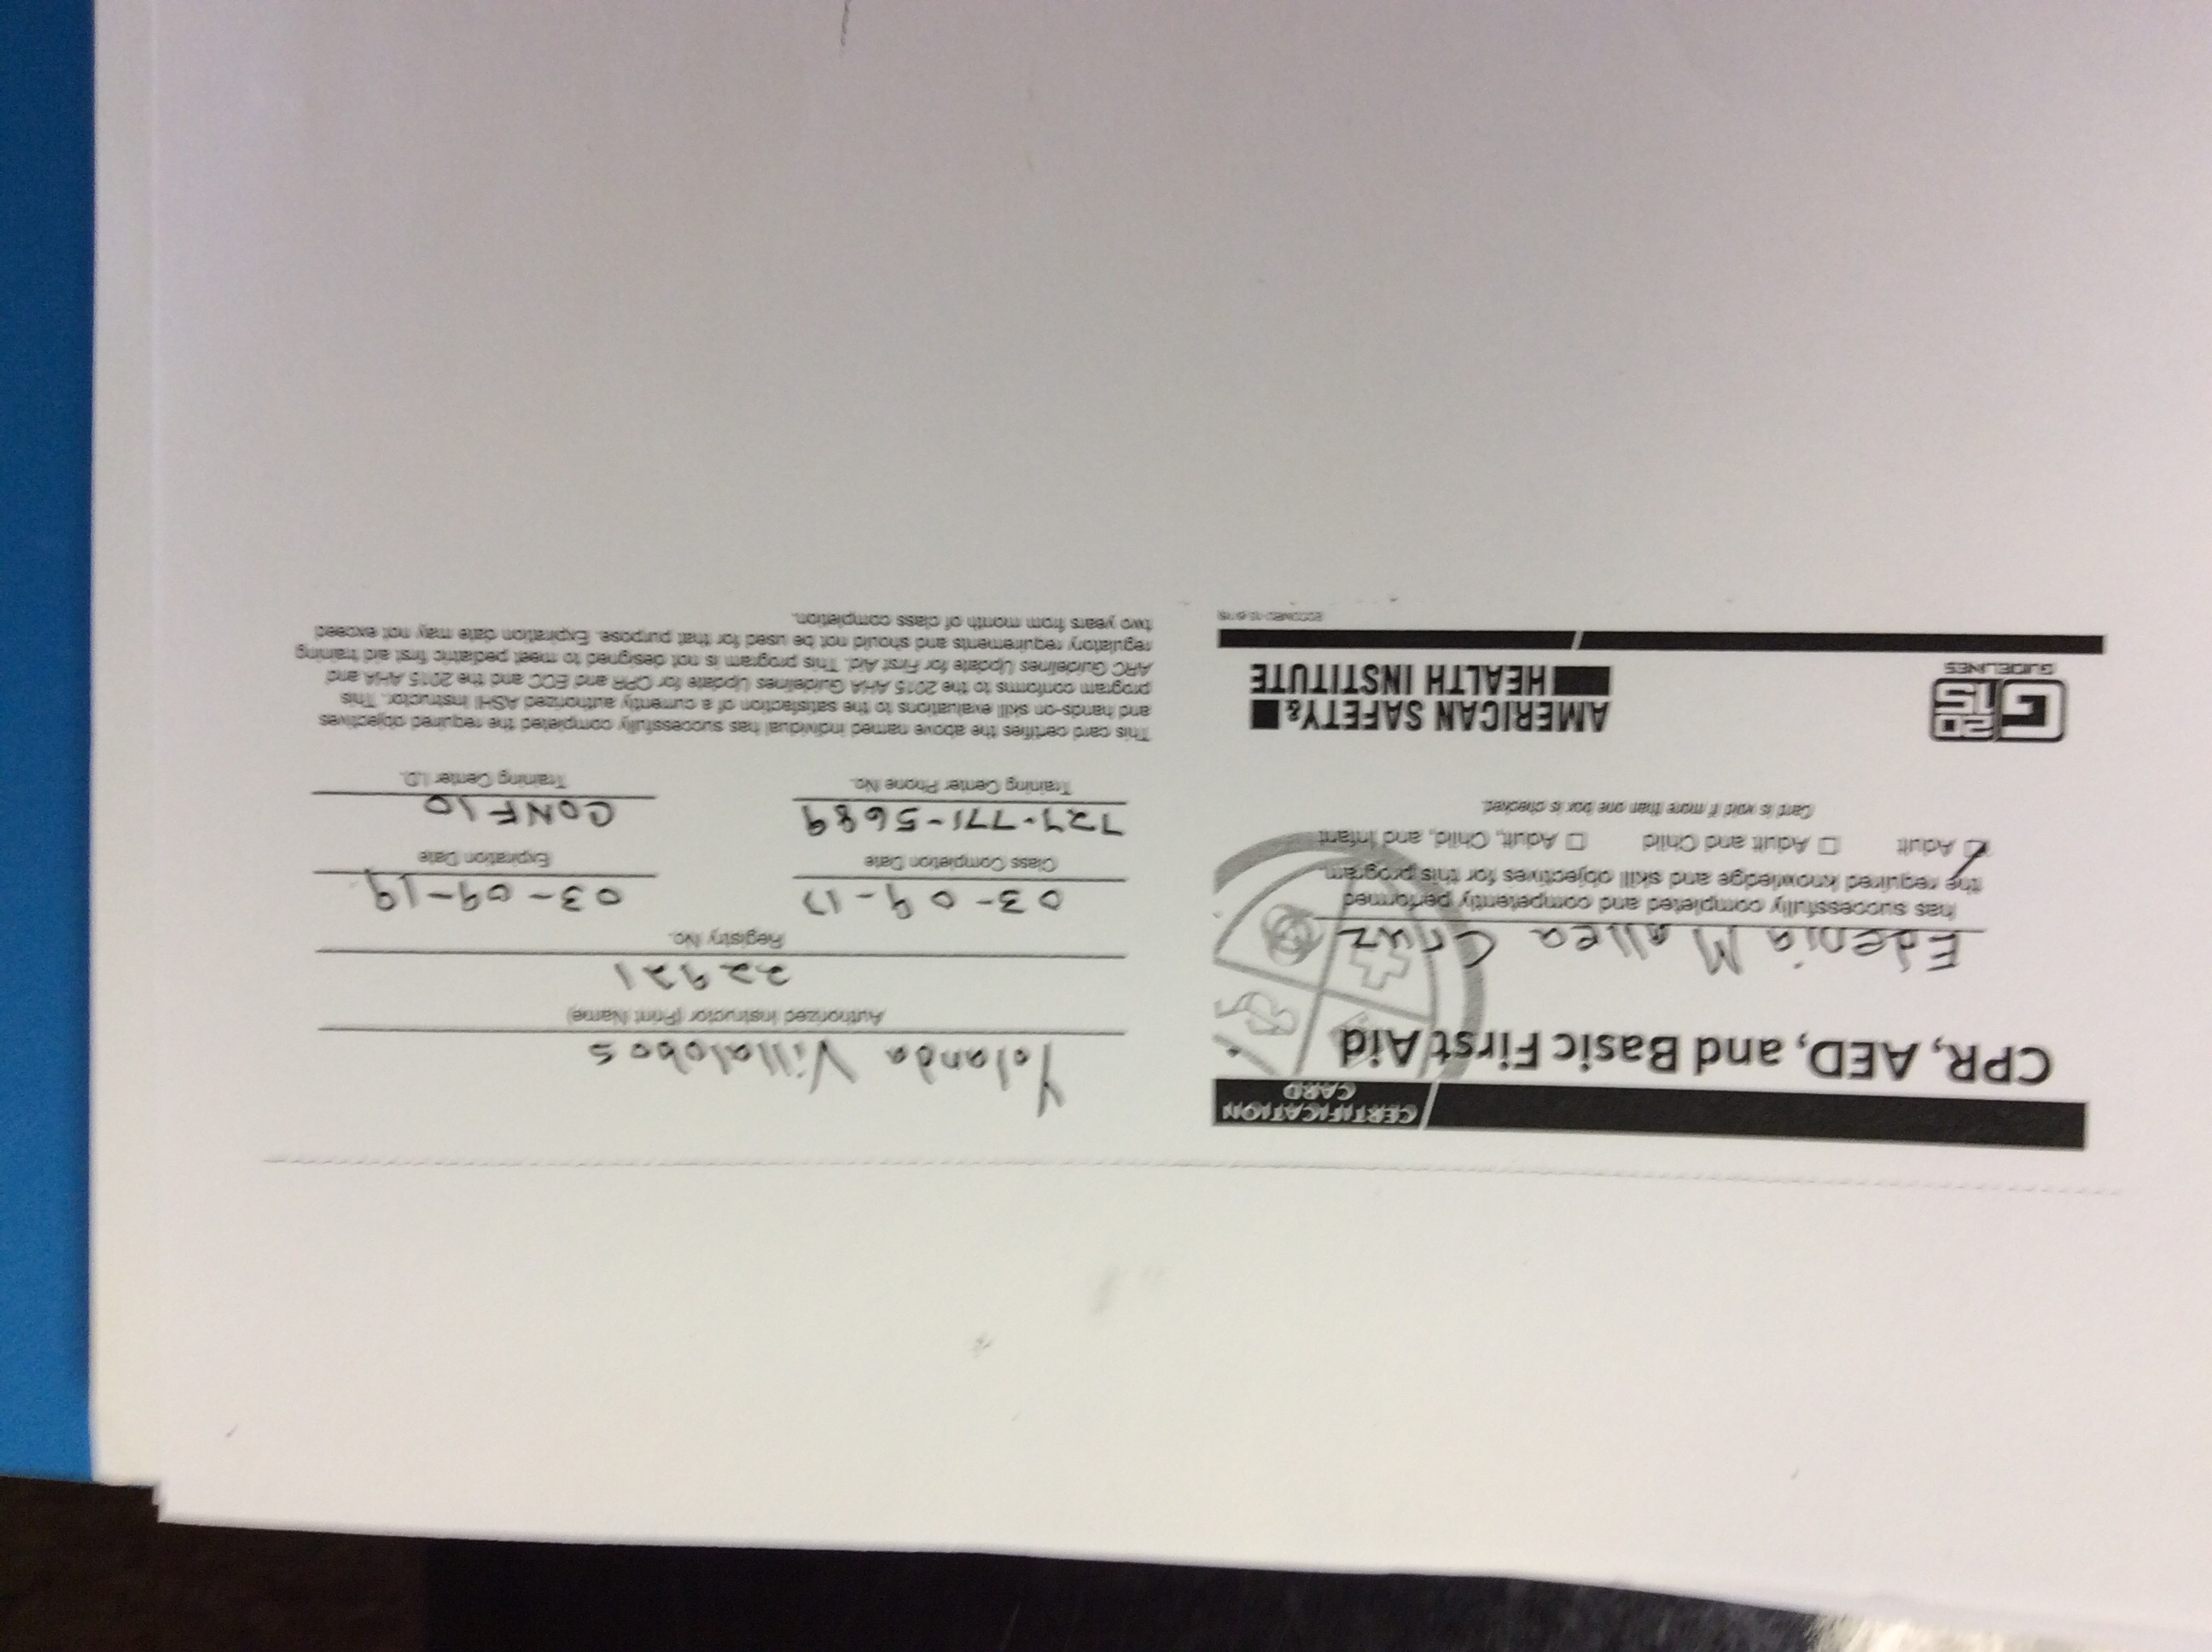 CERTIFICATION
CARD
CPR, AED, and Basic First Aid
Edenia Mallea Cruz
has successfully completed and competently performed
the required knowledge and skill objectives for this program.
Adult Adult and Child Adult, Child, and Infant
Card is void if more than one box is checked.
G 2015
GUIDELINES
AMERICAN SAFETY &
HEALTH INSTITUTE
Yolanda Villalobos
Authorized Instructor (Print Name)
22921
Registry No.
03-09-17 03-09-19
Class Completion Date Expiration Date
727-771-5689 CONF10
Training Center Phone No. Training Center I.D.
This card certifies the above named individual has successfully completed the required objectives
and hands-on skill evaluations to the satisfaction of a currently authorized ASHI Instructor. This
program conforms to the 2015 AHA Guidelines Update for CPR and ECC and the 2015 AHA and
ARC Guidelines Update for First Aid. This program is not designed to meet pediatric first aid training
regulatory requirements and should not be used for that purpose. Expiration date may not exceed
two years from month of class completion.